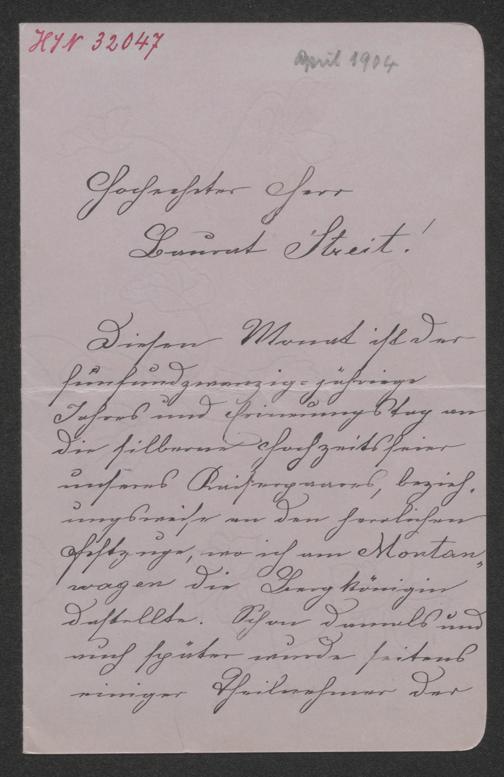 HIN 32047
April 1904
Hochgeehrter Herr
Baurat Streit!
Diesen Monat ist der
fünfundzwanzig=jährige
Jahres und Erinnungstag an
die silberne Hochzeitsfeier
unseres Kaiserpaares, bezieh,
ungsweise an den herrlichen
Festzuge, wo ich am Montan„
wagen die Bergkönigin
dastellte. Schon damals und
auch später wurde seitens
einiger Theilnehmer der